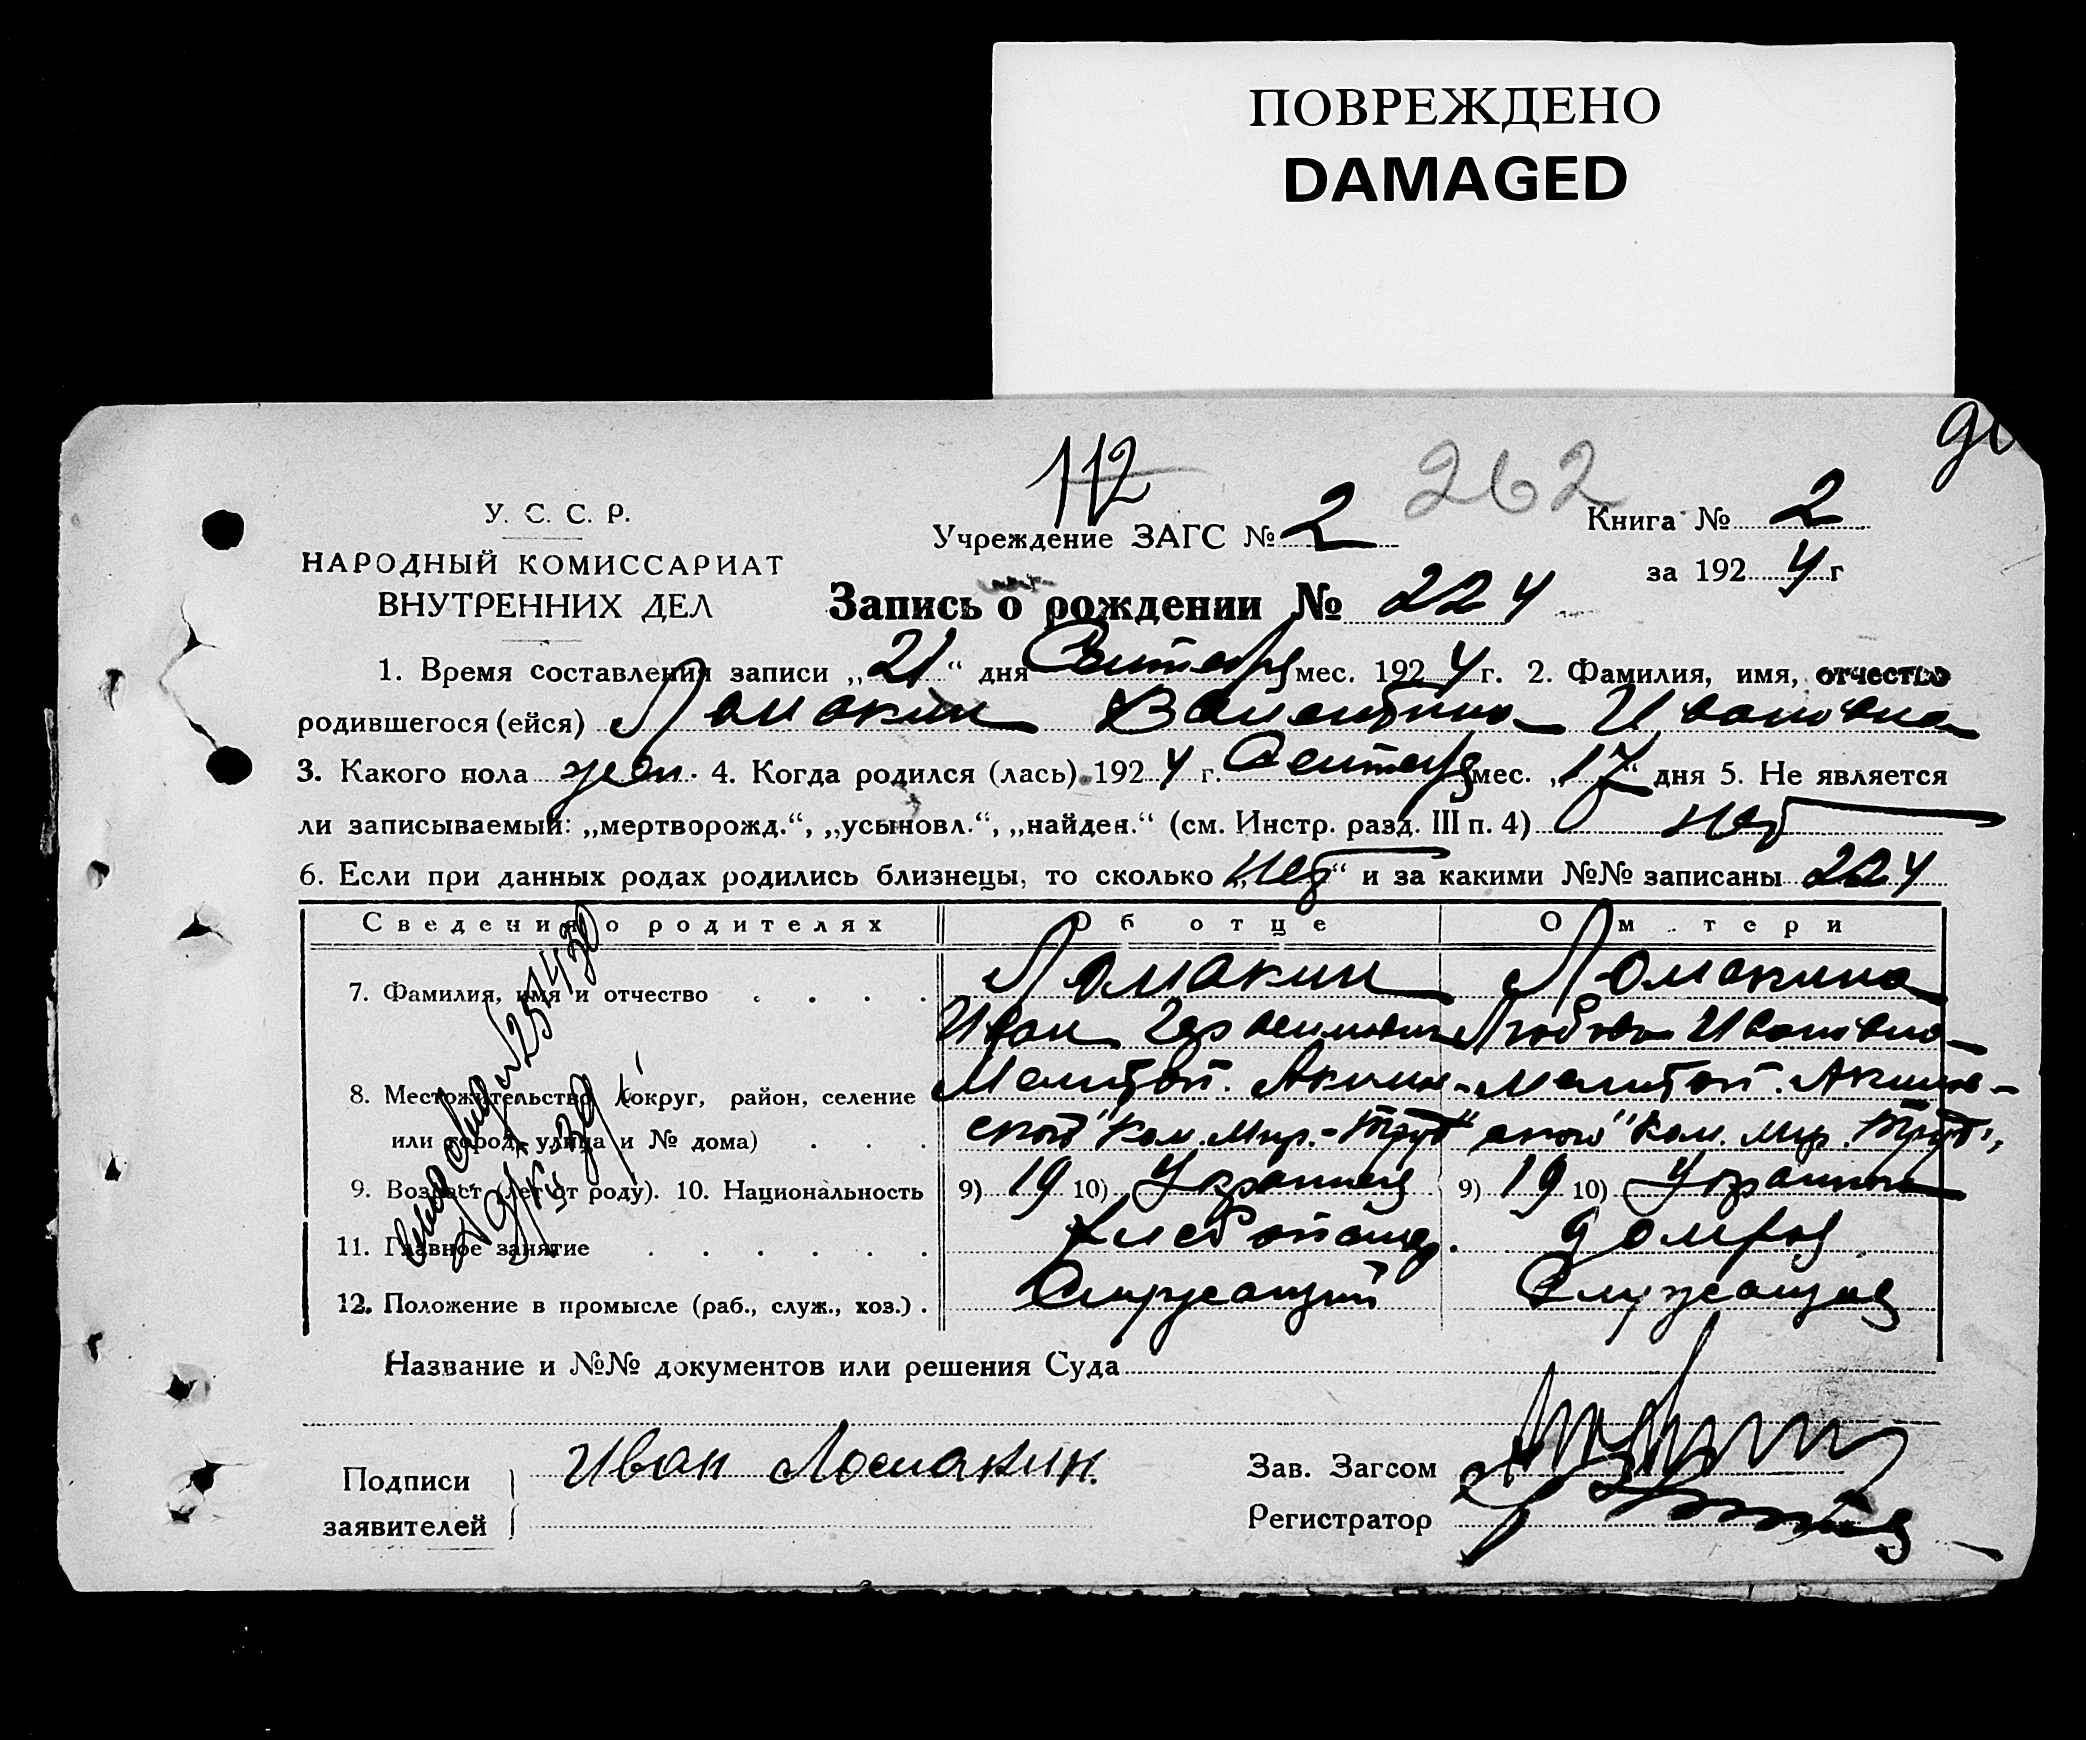 ПОВРЕЖДЕНО
DAMAGED
112
262
У. С. С. Р.
НАРОДНЫЙ КОМИССАРИАТ
ВНУТРЕННИХ ДЕЛ
Учреждение ЗАГС № 2
Книга № 2
за 1924 г
Запись о рождении № 224
1. Время составления записи „21“ дня Сентября мес. 1924 г. 2. Фамилия, имя, отчество
родившегося (ейся) Ломакин Валентина Ивановна
3. Какого пола жен. 4. Когда родился (лась) 1924 г. Сентября мес. „17“ дня 5. Не является
ли записываемый: „мертворожд.“, „усыновл.“, „найден.“ (см. Инстр. разд. III п. 4) Нет
6. Если при данных родах родились близнецы, то сколько „Нет“ и за какими №№ записаны 224
Сведения о родителях Об отце О м тери
7. Фамилия, имя и отчество . . . . Ломакин Ломакина
Иван Герасимович Любовь Ивановна
8. Местожительство (округ, район, селение Мелитоп. Акимов- Мелитоп. Акимов-
или город, улица и № дома) . . . ского "Ком. Мир.-Труд" ского "Ком. Мир. Труд"
9. Возраст (лет от роду). 10. Национальность 9) 19 10) Украинец 9) 19 10) Украинка
11. Главное занятие . . . . . . домхоз.
12. Положение в промысле (раб., служ., хоз.) . Служащий Служащая
Название и №№ документов или решения Суда
Подписи заявителей Иван Ломакин.
Зав. Загсом
Регистратор